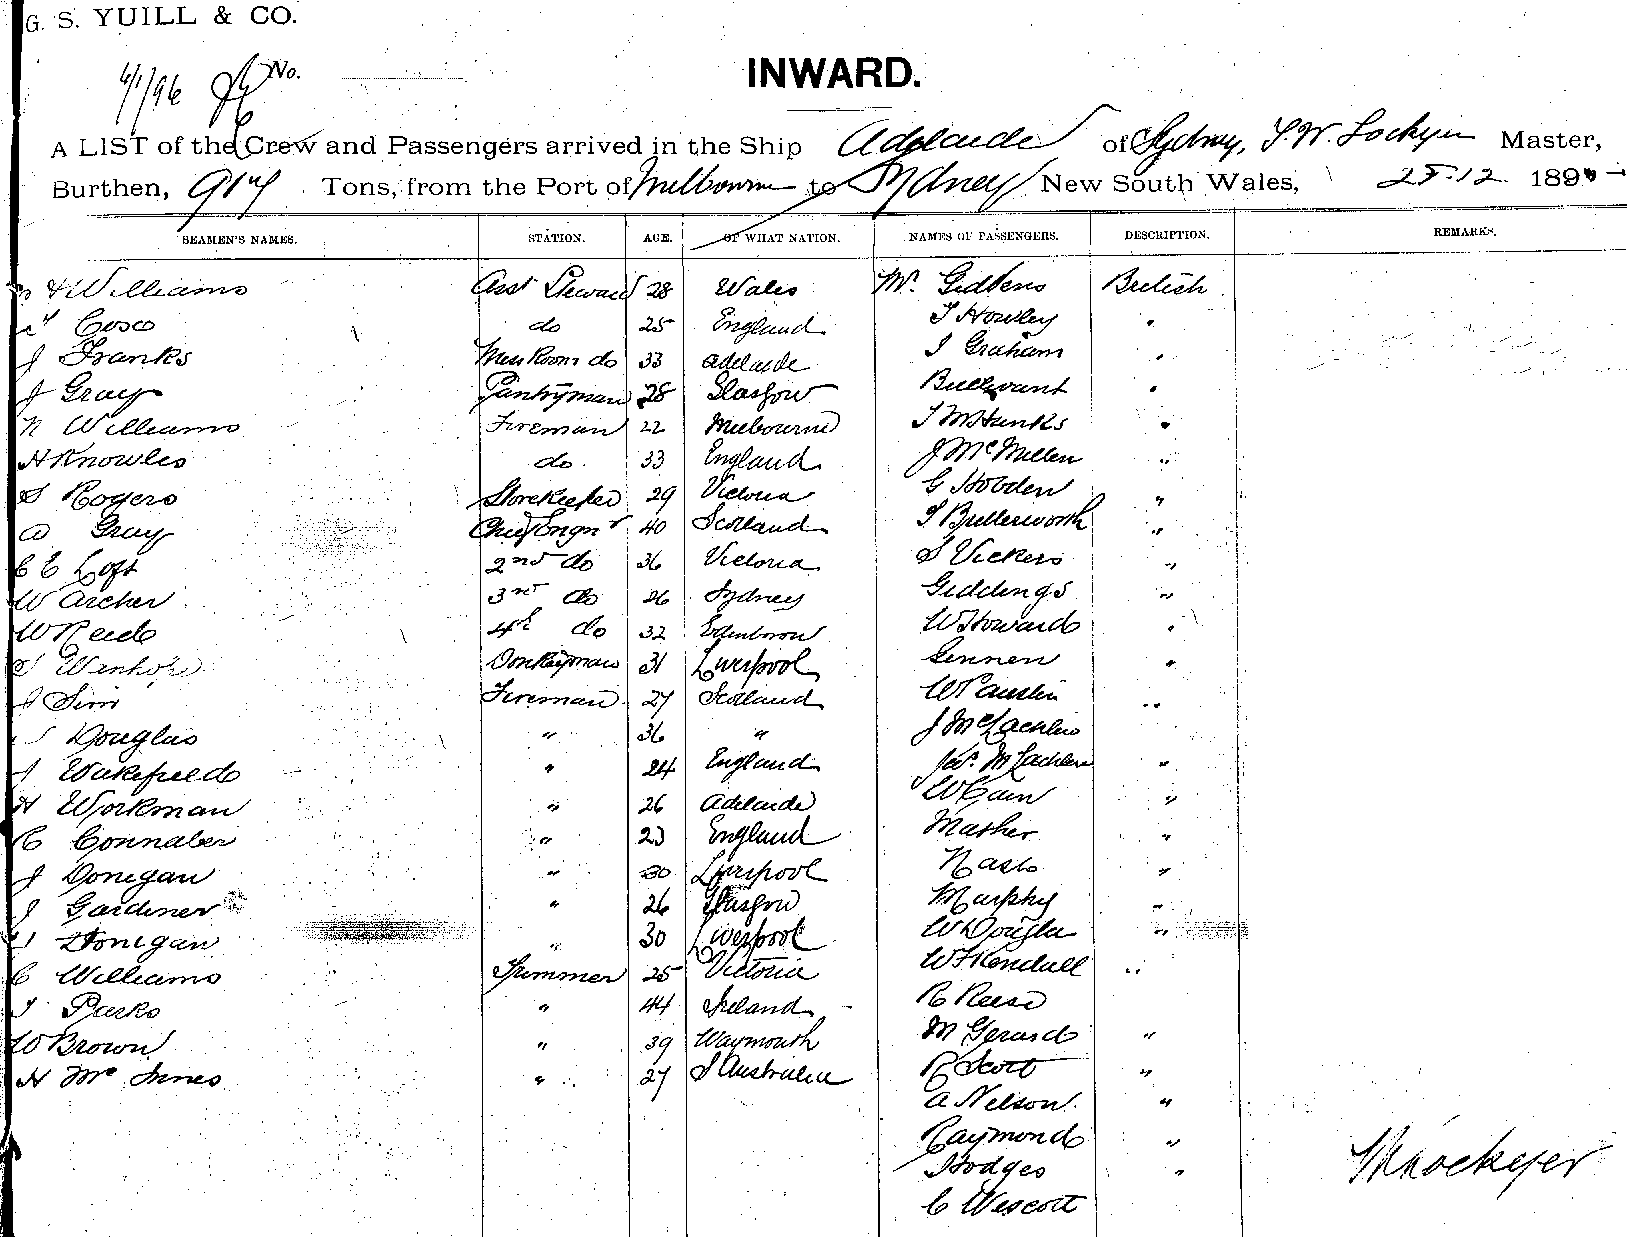 G. S. YUILL & CO.
6/1/96 No.
INWARD.
A LIST of the Crew and Passengers arrived in the Ship Adelaide of Sydney, T. W. Lockyer Master,
Burthen, 917 Tons, from the Port of Melbourne to Sydney New South Wales, 25.12 189
SEAMEN'S NAMES. STATION. AGE. OF WHAT NATION. NAMES OF PASSENGERS. DESCRIPTION. REMARKS.
Williams Asst Steward 28 Wales Mr. Giddens British
Cosco do 25 England T Howley "
J Franks Mess Room do 33 Adelaide J Graham "
J Gray Pantryman 28 Glasgow Bullivant "
N Williams Fireman 22 Melbourne "
H Knowles do 33 England J McMillen "
S Rogers Storekeeper 29 Victoria G Hobden "
A Gray Chief Engnr 40 Scotland T Butterworth "
C E Loft 2nd do 36 Victoria S Vickers "
W Archer 3rd do 26 Sydney Giddings "
W Reid 4th do 32 W Howard "
Donkeyman 31 Liverpool Lennen "
J Sim Fireman 27 Scotland W Austin "
Douglas " 36 " J McLachlan
J Wakefield " 24 England Jas. McLachlan "
H Workman " 26 Adelaide W Cain "
C Connaber " 23 England Mather "
J Donigan " 30 Liverpool Nash "
J Gardiner " 26 Glasgow Murphy "
Donigan " 30 Liverpool W Douglas "
C Williams Trimmer 25 Victoria W F Kendall "
T Parks " 44 Ireland R Reese
W Brown " 39 Waymouth M Gerard "
H McInnes " 27 S Australia R Scott "
A Nelson "
Raymond "
Hodges "
C Wescott
T W Lockyer